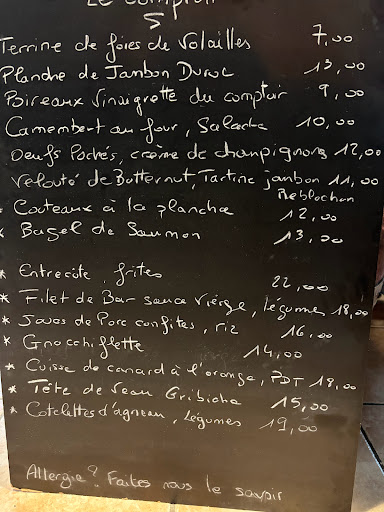 Le Comptoir
5
Terrine de foies de Volailles 7,00
Planche de Jambon Duroc 13,00
Poireaux Vinaigrette du comptoir 9,00
Camembert au four, Salade 10,00
Oeufs Pochés, crème de champignons 12,00
Velouté de Butternut, Tartine jambon 11,00
Reblochon
* Couteaux à la plancha 12,00
* Bagel de Saumon 13,00
* Entrecôte frites 22,00
* Filet de Bar sauce Vierge, légumes 18,00
* Joues de Porc confites, riz 16,00
* Gnocchiflette 14,00
* Cuisse de canard à l'orange, PDT 18,00
* Tête de Veau Gribiche 15,00
* Cotelettes d'agneau, Légumes 19,00
Allergie? Faites nous le savoir